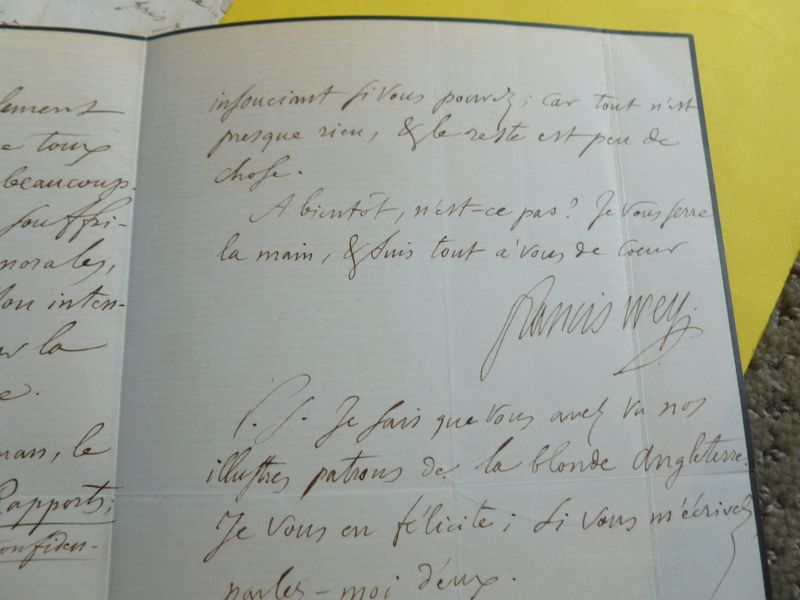 lement
e toux
beaucoup.
souffri-
morales,
ton inten-
sur la
e.
man, le
Rapports;
confiden-
insouciant si vous pouvez; car tout n'est
presque rien, & le reste est peu de
chose.
A bientôt, n'est-ce pas? Je vous serre
la main, & suis tout à vous de coeur
francis wey.
P. S. Je sais que vous avez vu nos
illustres patrons de la blonde Angleterre.
Je vous en félicite; si vous m'écrivez
parlez-moi d'eux.